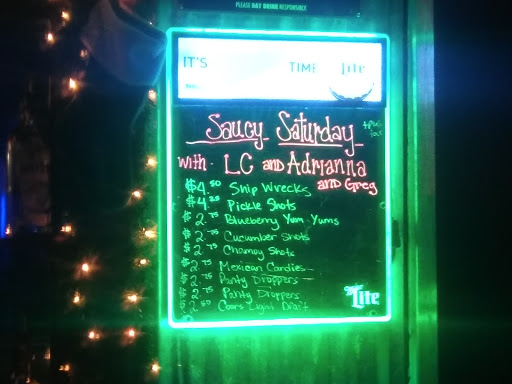 PLEASE DAY DRINK RESPONSIBLY.
IT'S TIME Lite
Saucy Saturday
with LC and Adrianna
and Greg
$4.50 Ship Wrecks
$4.25 Pickle Shots
$2.75 Blueberry Yum-Yums
$2.75 Cucumber Shots
$2.75 Chamoy Shots
$2.75 Mexican Candies
$2.75 Panty Droppers
$2.75 Panty Droppers
$2.50 Coors Light Draft
Lite